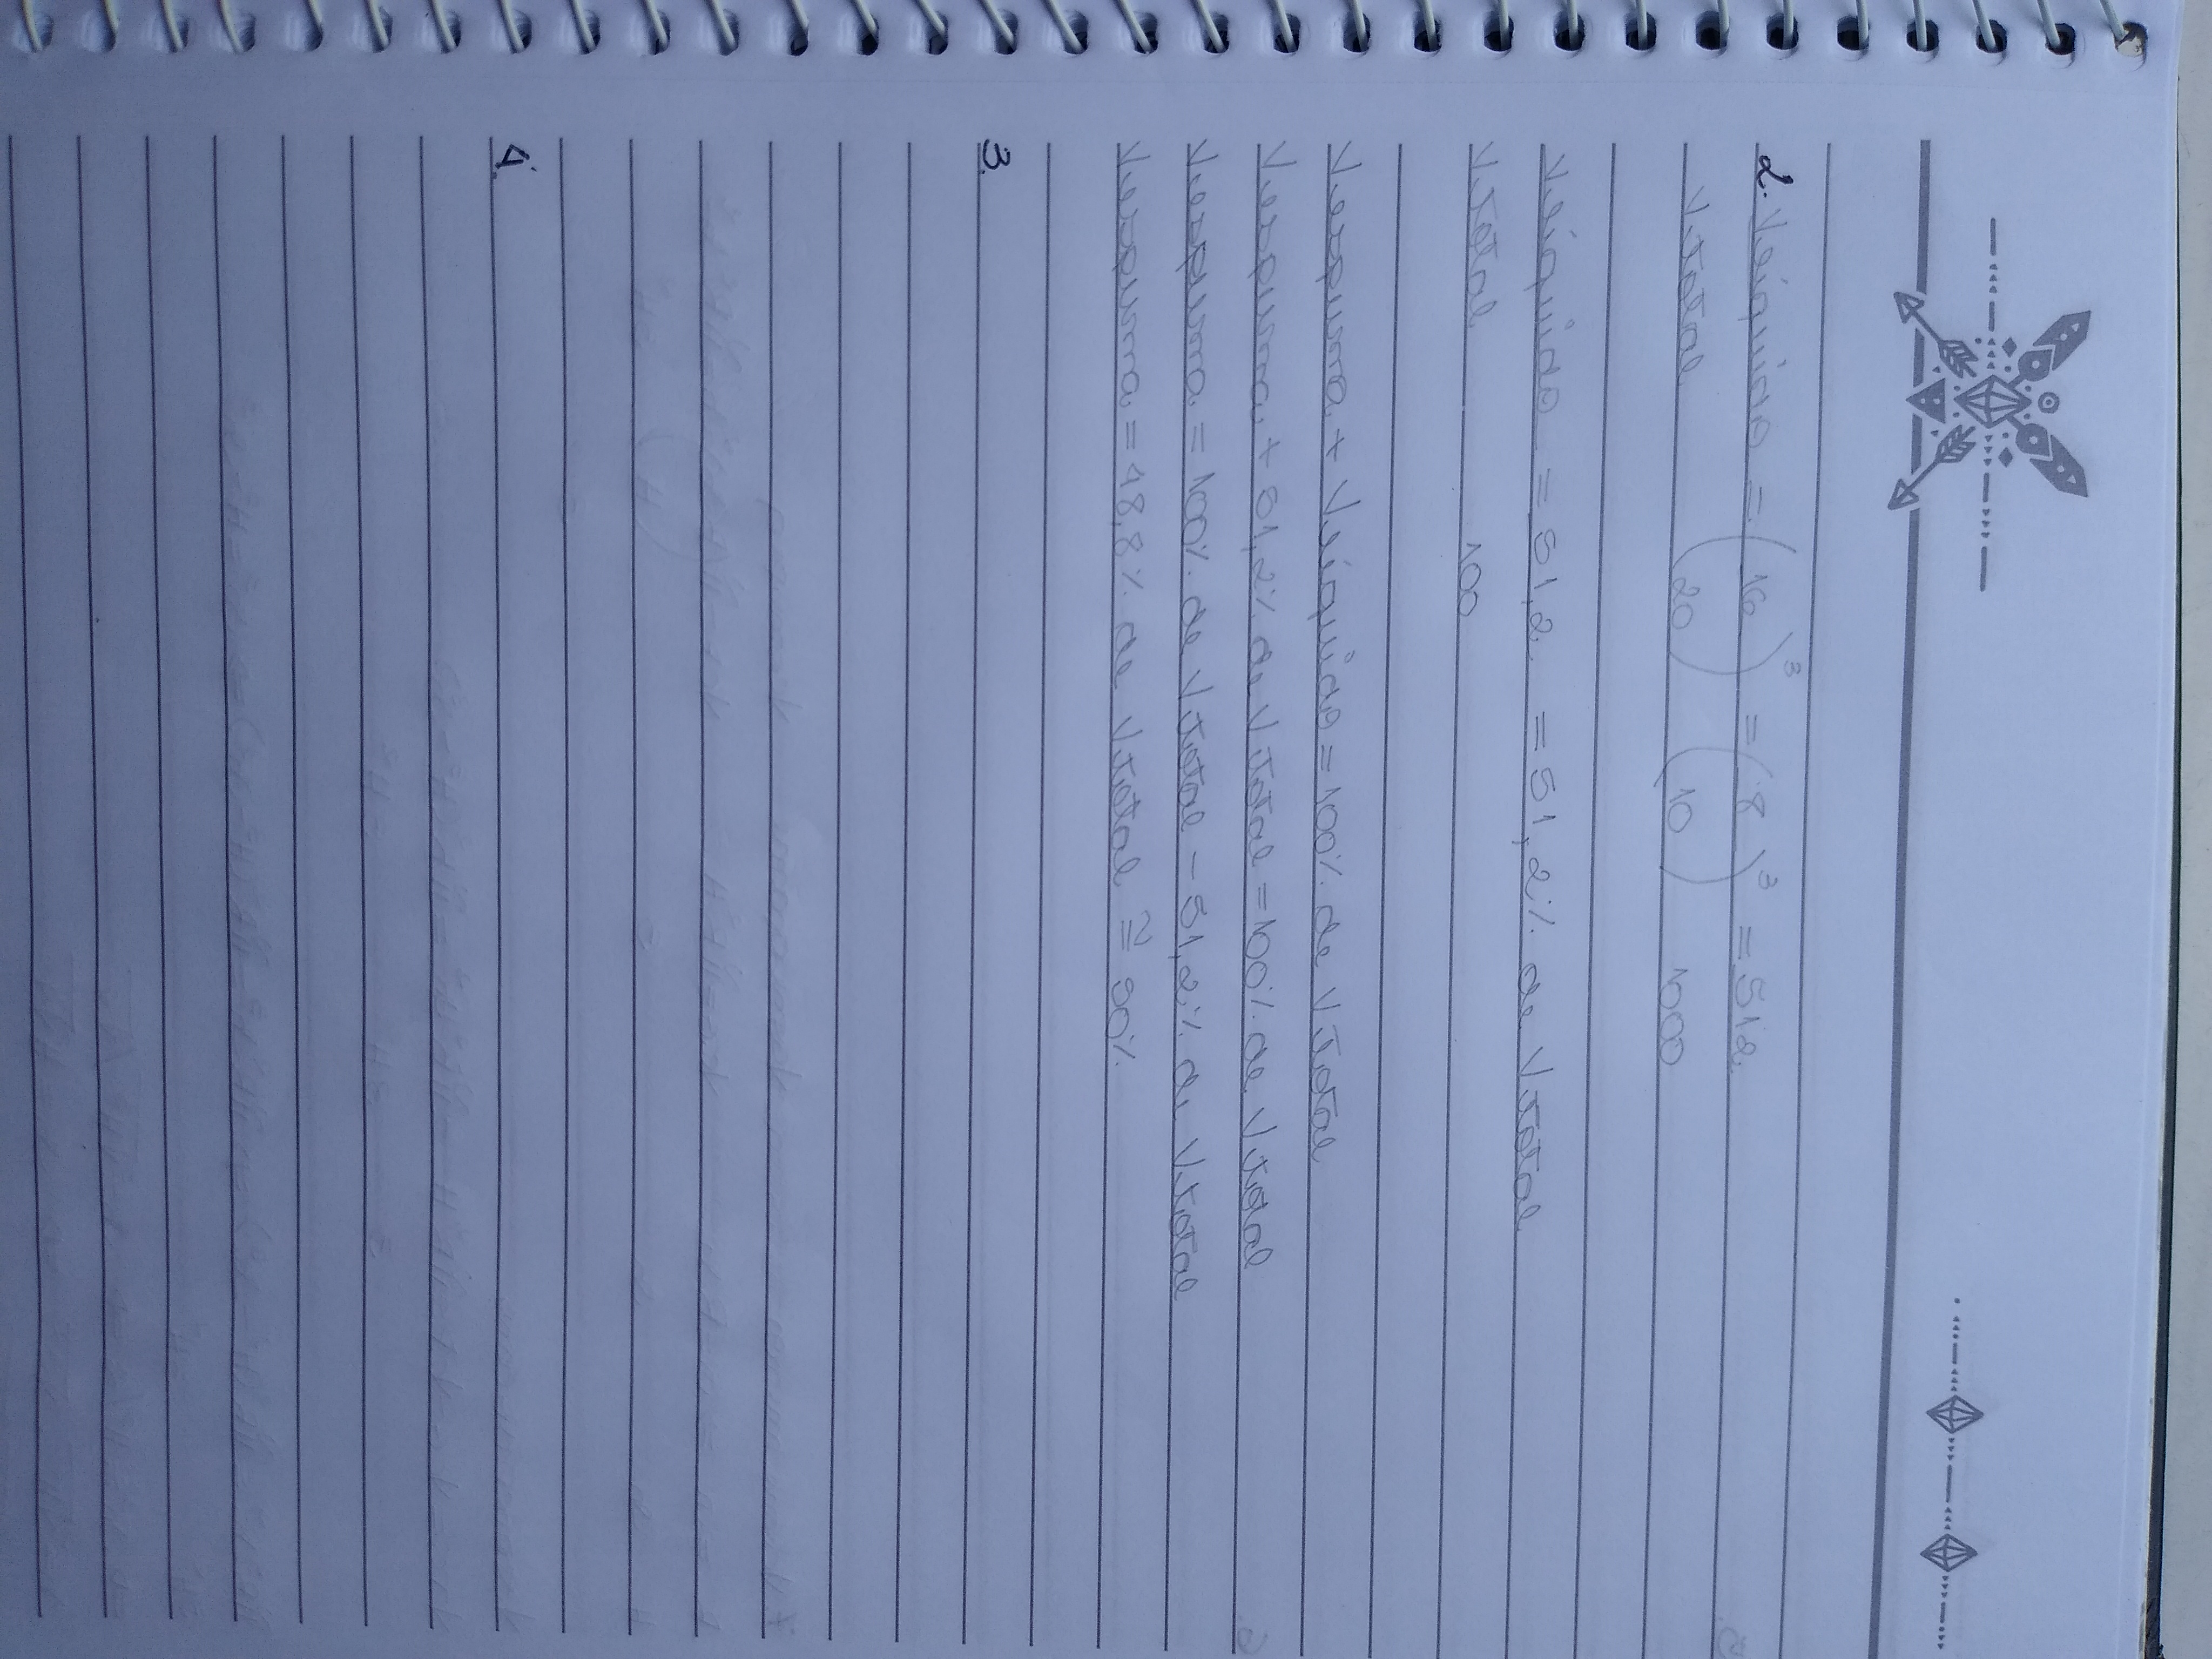 2. Vlíquido = (16)³ = (8)³ = 512
Vtotal (20) (10) 1000
Vlíquido = 51,2 = 51,2% de Vtotal
Vtotal 100
Vespuma + Vlíquido = 100% de Vtotal
Vespuma + 51,2% de Vtotal = 100% de Vtotal
Vespuma = 100% de Vtotal - 51,2% de Vtotal
Vespuma = 48,8% de Vtotal ≅ 50%
3.
4.